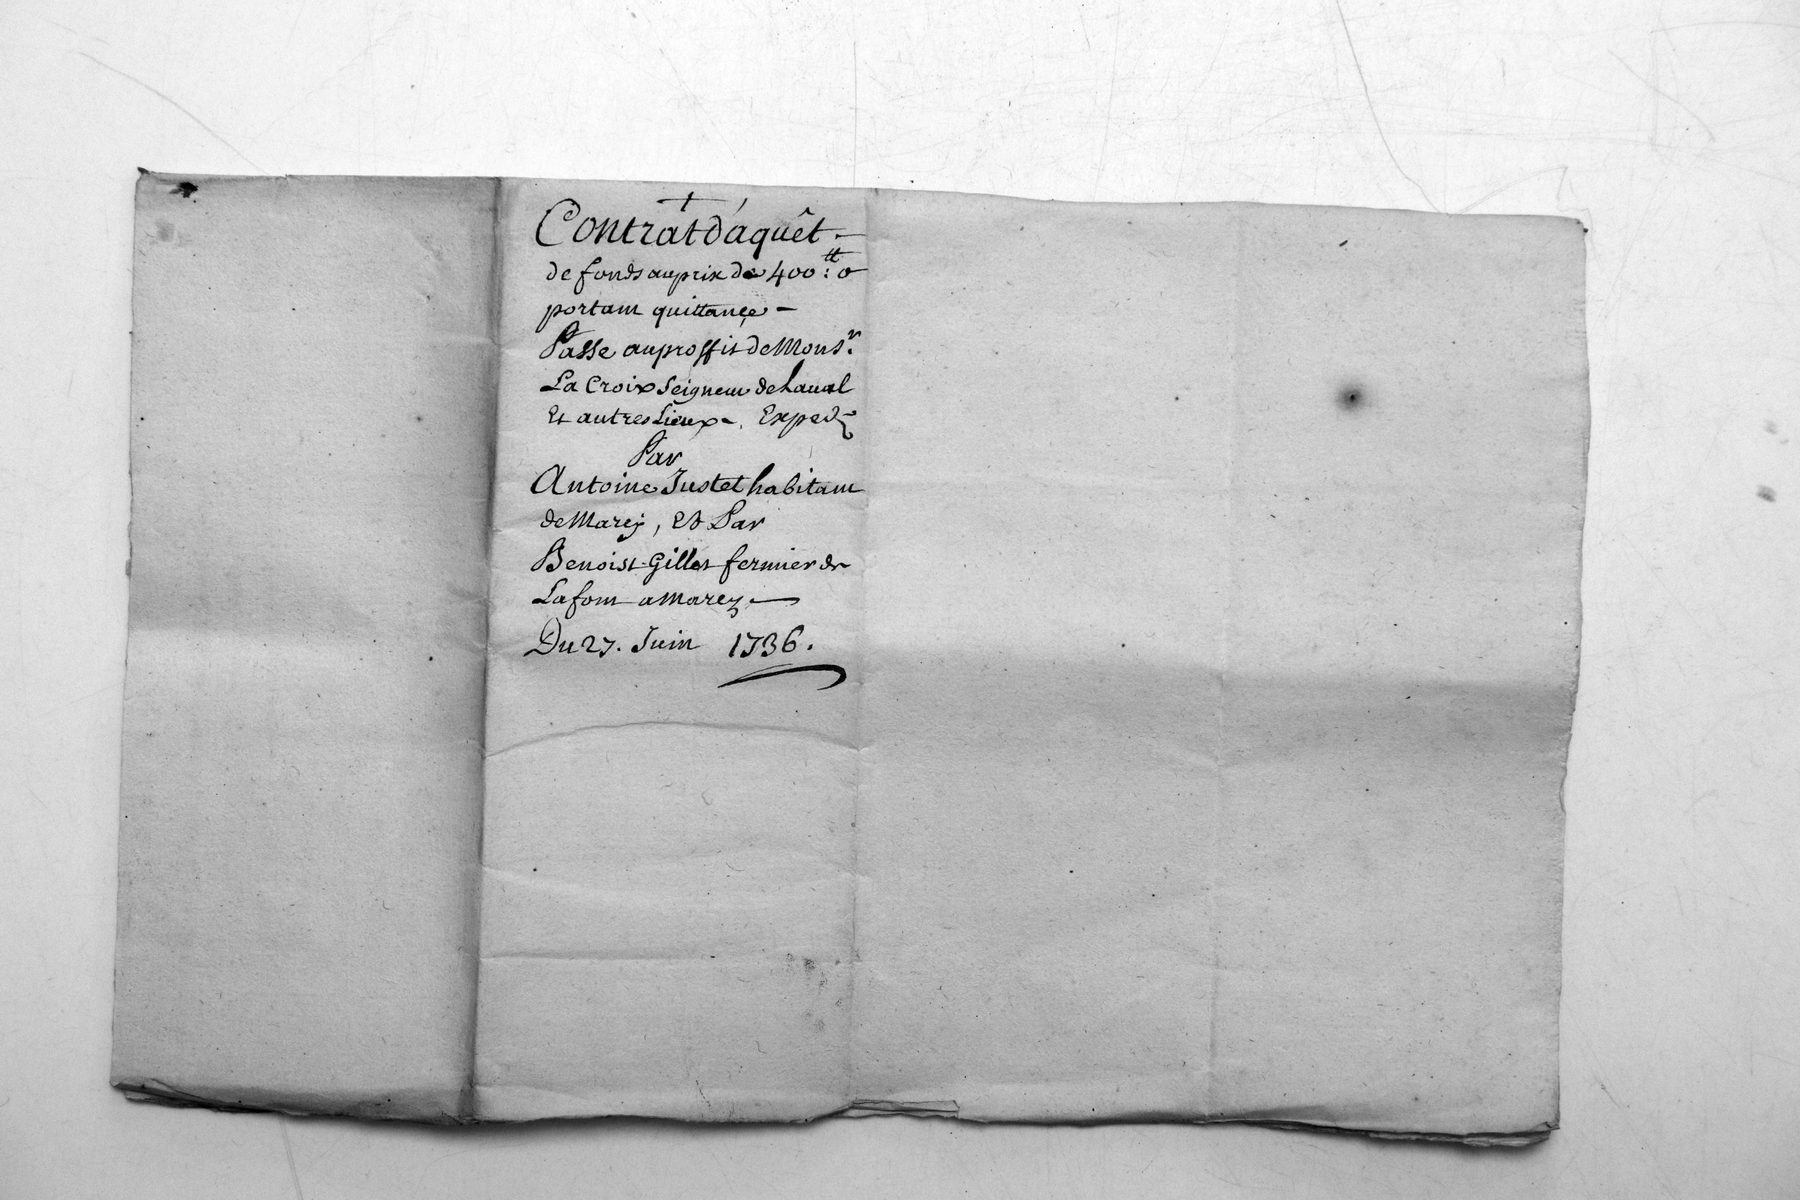 +
Contrat d'aquêt -
de fonds au prix de 400:tt o
portant quittançe -
Passe au proffit de Monsr.
La Croix Seigneur de Laval
Et autres Lieux -. Exped
Par
Antoine Justet habitant
de Marej, Et Par
Benoist Gillet fermier de
Lafont a Marez -
Du 27. Juin 1736.